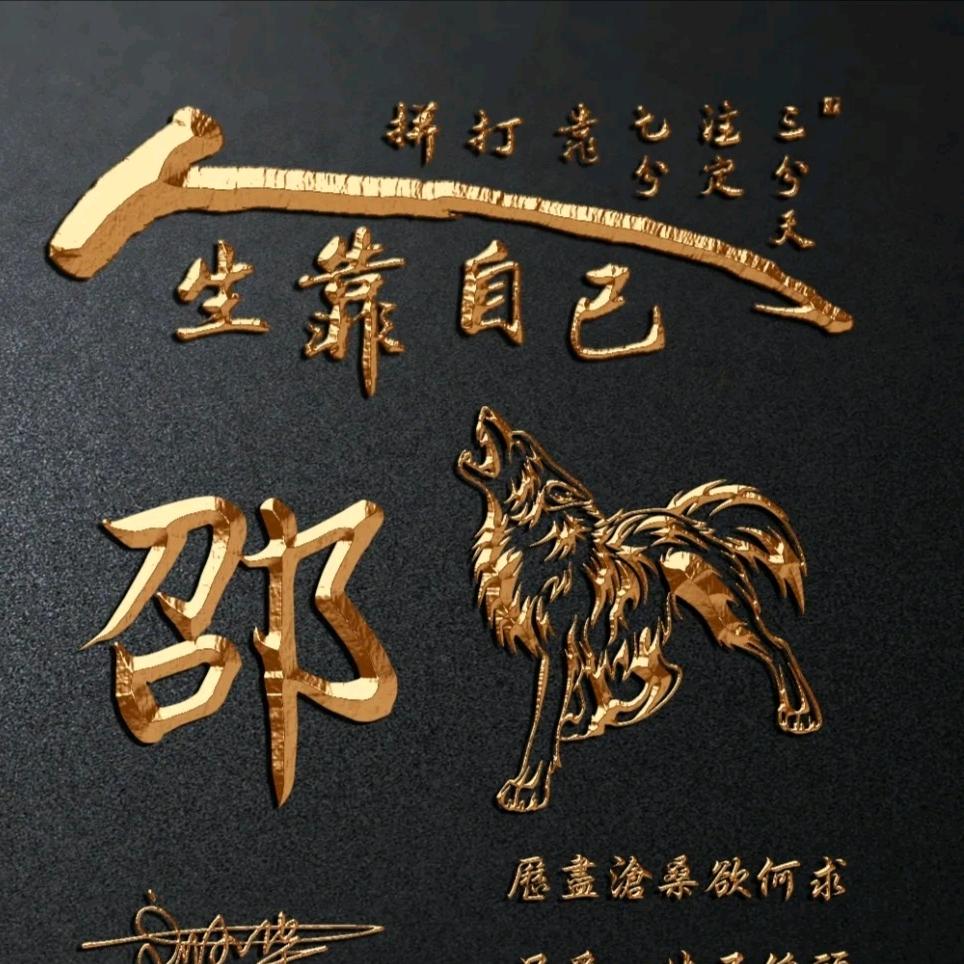 三分天
注定
七分
靠
打
拼
人生靠自己
邵
歷盡滄桑欲何求